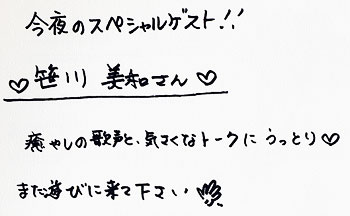 今夜のスペシャルゲスト!!
♡笹川 美和さん♡
癒やしの歌声と、気さくなトークに うっとり♡
また遊びに来て下さい